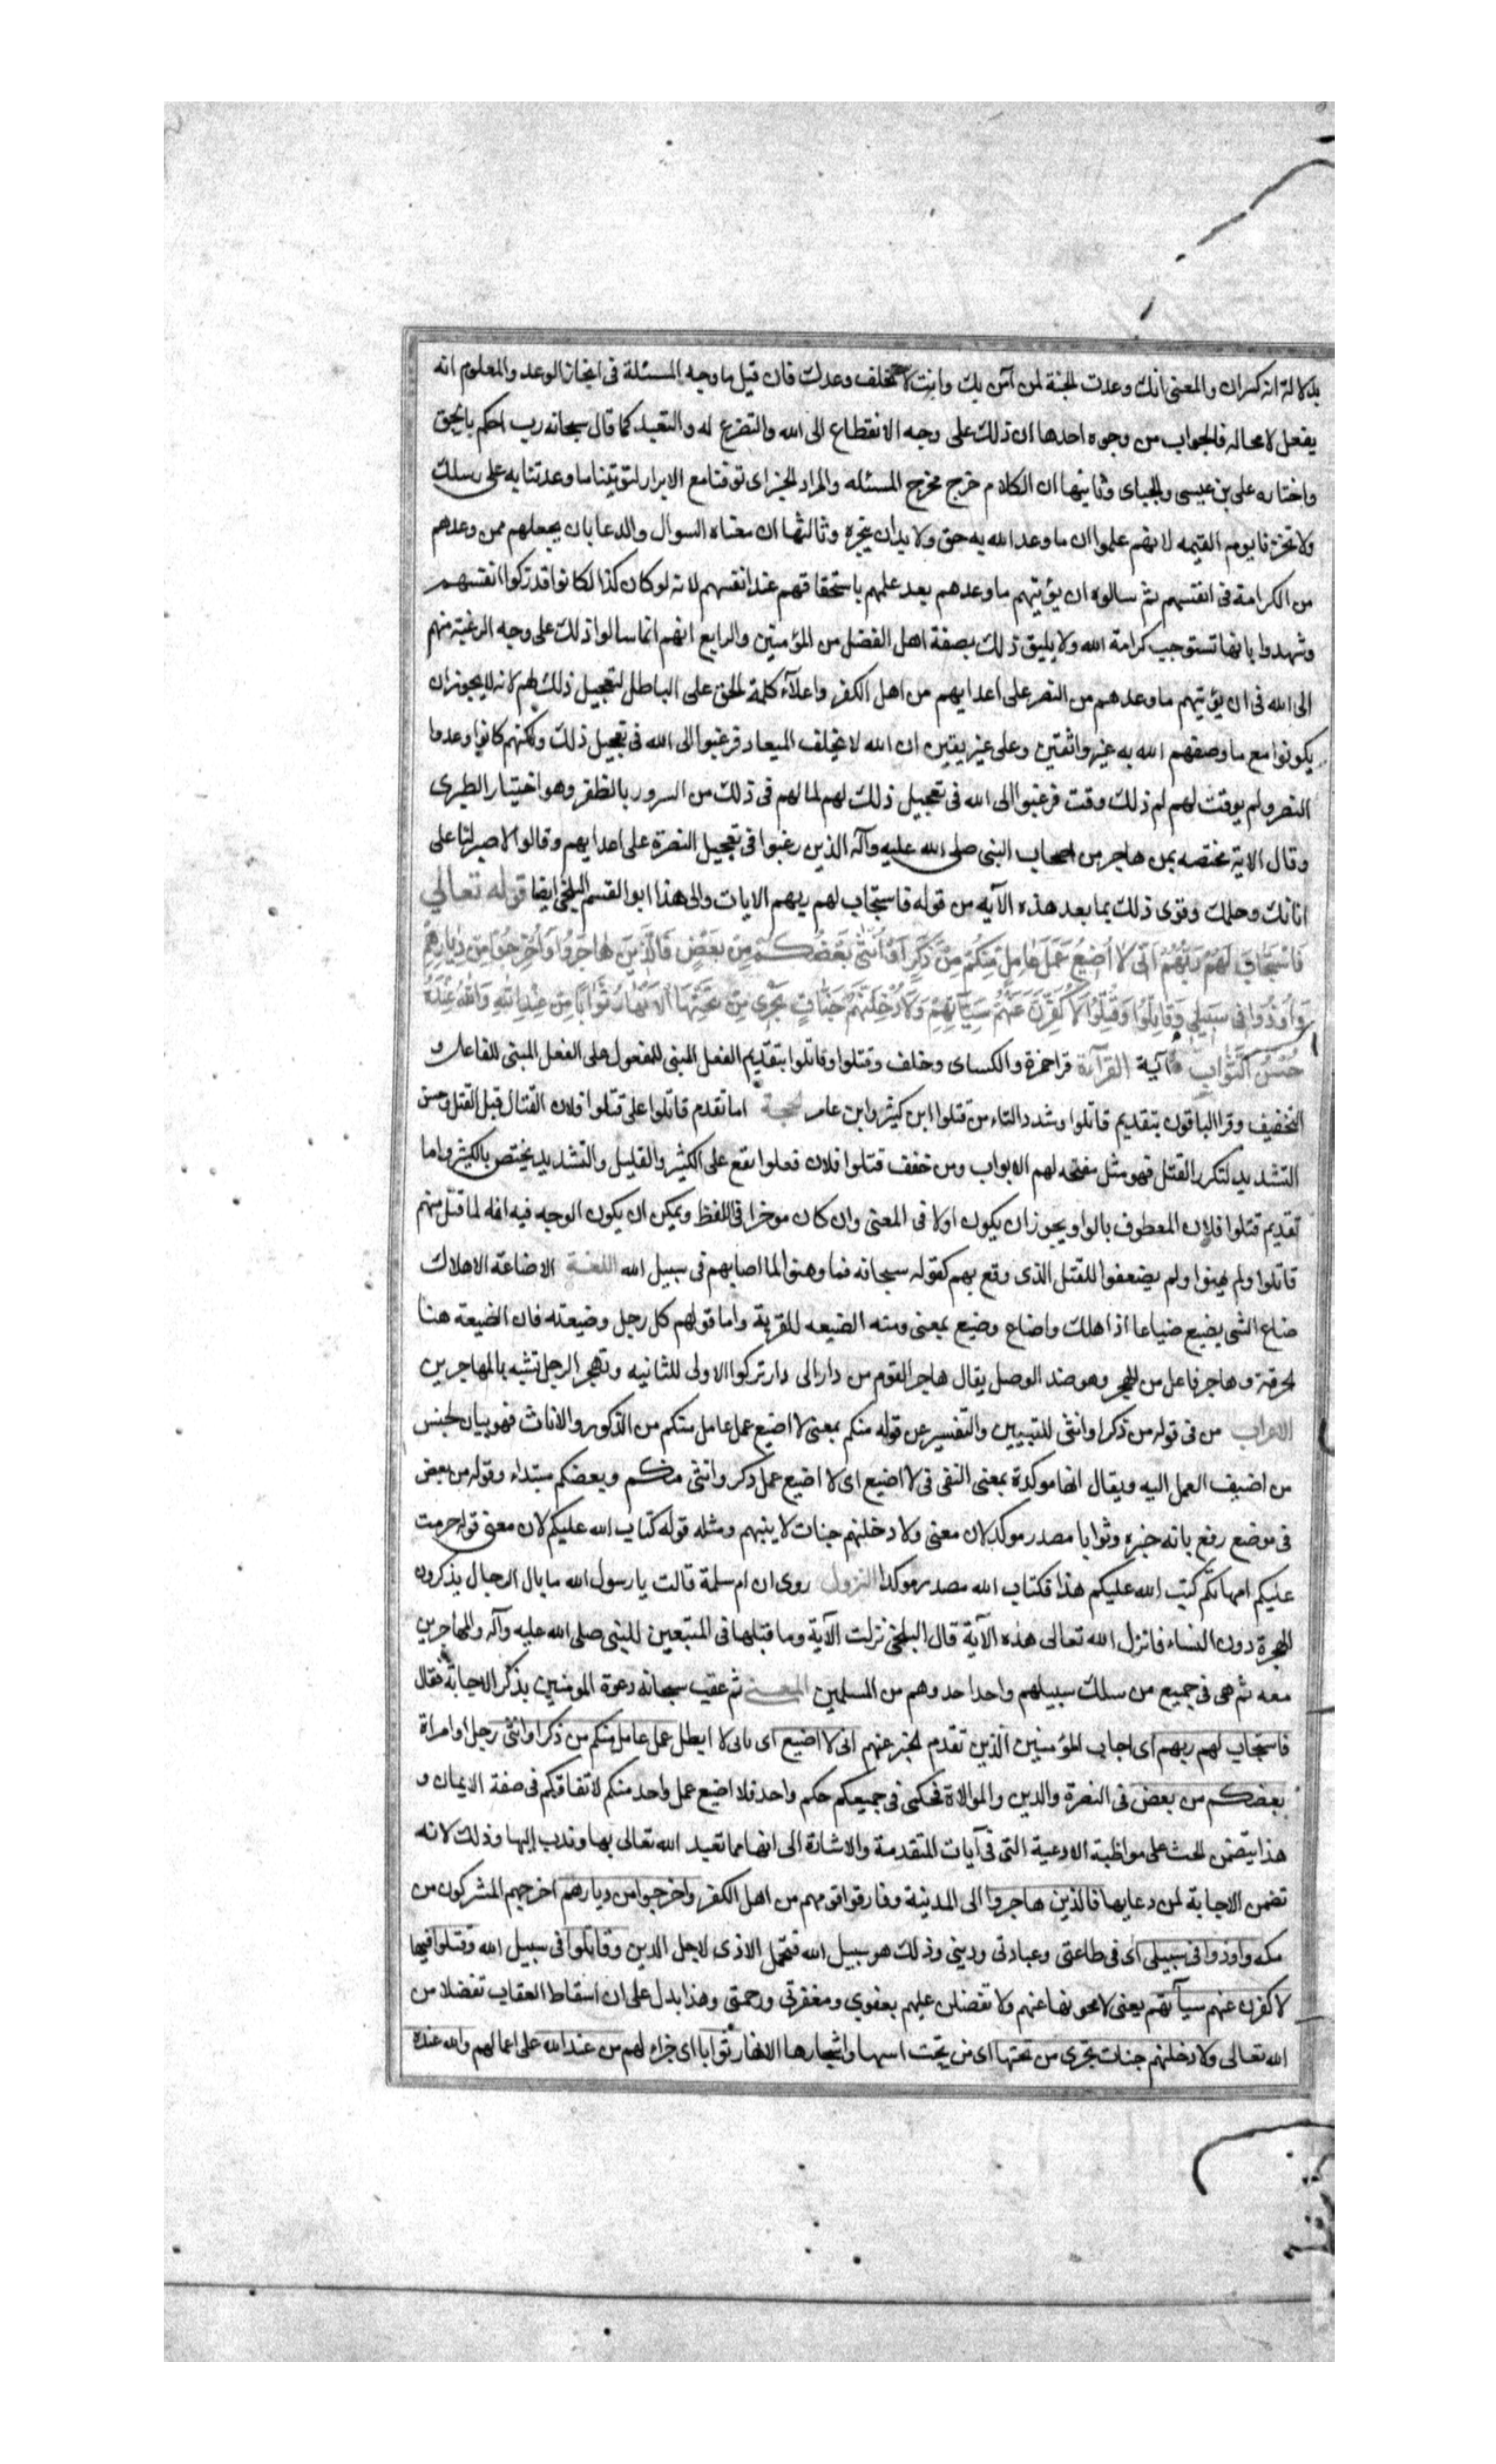 بدلالة انه كسران والمعنى انك وعدت الجنة لمن آمن بك وانت لا تخلف وعدك فان قيل ما وجه المسئلة فى انجاز الوعد والمعلوم انه
يفعل لا محاله فالجواب من وجوه احدها ان ذلك على وجه الانقطاع الى الله والتضرع له والتعبد كما قال سبحانه رب احكم بالحق
واختاره على بن عيسى والجباى وثانيها ان الكلام خرج مخرج المسئله والمراد الخبر اى توفنا مع الابرار لتوتينا ما وعدتنا به على رسلك
ولا تخزنا يوم القيمه لانهم علموا ان ما وعد الله به حق ولا بد ان ينجزه وثالثها ان معناه السوال والدعا بان يجعلهم ممن وعدهم
من الكرامة فى انفسهم ثم سالوه ان يؤتيهم ما وعدهم بعد علمهم باستحقاقهم عند انفسهم لانه لو كان كذا لكانوا قد زكوا انفسهم
وشهدوا بانها تستوجب كرامة الله ولا يليق ذلك بصفة اهل الفضل من المؤمنين والرابع انهم انما سالوا ذلك على وجه الرغبة منهم
الى الله فى ان يؤتيهم ما وعدهم من النصر على اعدايهم من اهل الكفر واعلاء كلمة الحق على الباطل لتعجيل ذلك لهم لانه لا يجوز ان
يكونوا مع ما وصفهم الله به غير واثقين وعلى غير يقين ان الله لا يخلف الميعاد فرغبوا الى الله فى تعجيل ذلك ولكنهم كانوا وعدوا
النصر ولم يوقت لهم لم ذلك وقت فرغبوا الى الله فى تعجيل ذلك لهم لما لهم فى ذلك من السرور بالظفر وهو اختيار الطبرى
وقال الاية مختصه بمن هاجر من اصحاب النبى صلى الله عليه وآله الذين رغبوا فى تعجيل النصرة على اعدايهم وقالوا لا صبر لنا على
اناتك وحلمك وقوى ذلك بما بعد هذه الآيه من قوله فاستجاب لهم ربهم الايات والى هذا ابو القسم البلخى ايضا قوله تعالى
فَاسْتَجَابَ لَهُمْ رَبُّهُمْ اَنِّى لَا اُضِيعُ عَمَلَ عَامِلٍ مِنْكُمْ مِنْ ذَكَرٍ اَوْ اُنْثٰى بَعْضُكُمْ مِنْ بَعْضٍ فَالَّذِينَ هَاجَرُوا وَاُخْرِجُوا مِنْ دِيَارِهِمْ
وَاُوذُوا فِى سَبِيلِى وَقَاتَلُوا وَقُتِلُوا لَاُكَفِّرَنَّ عَنْهُمْ سَيِّاٰتِهِمْ وَلَاُدْخِلَنَّهُمْ جَنَّاتٍ تَجْرِى مِنْ تَحْتِهَا الْاَنْهَارُ ثَوَابًا مِنْ عِنْدِ اللّٰهِ وَاللّٰهُ عِنْدَهُ
حُسْنُ الثَّوَابِ آية القرآءة قرا حمزة والكساى وخلف وقتلوا وقاتلوا بتقديم الفعل المبنى للمفعول على الفعل المبنى للفاعل و
التخفيف وقرا الباقون بتقديم قاتلوا وشدد التاء من قتلوا ابن كثير وابن عامر الحجة اما تقدم قاتلوا على قتلوا فلان القتال قبل القتل ومن
التشديد لتكرر القتل فهو مثل مفتحه لهم الابواب ومن خفف قتلوا فلان فعلوا يقع على الكثير والقليل والتشديد يختص بالكثير واما
تقديم قتلوا فلان المعطوف بالواو يجوز ان يكون اولا فى المعنى وان كان موخرا فى اللفظ ويمكن ان يكون الوجه فيه انه لما قتل منهم
قاتلوا ولم يهنوا ولم يضعفوا للقتل الذى وقع بهم كقوله سبحانه فما وهنوا لما اصابهم فى سبيل الله اللغة الاضاعة الاهلاك
ضاع الشى يضيع ضياعا اذا هلك واضاع وضيع بمعنى ومنه الضيعه للقرية واما قولهم كل رجل وضيعته فان الضيعة هنا
الحرفة وهاجر فاعل من الهجر وهو ضد الوصل يقال هاجر القوم من دار الى دار تركوا الاولى للثانيه وتهجر الرجل تشبه بالمهاجرين
الاعراب من فى قوله من ذكر او انثى للتبيين والتفسير عن قوله منكم بمعنى لا اضيع عمل عامل منكم من الذكور والاناث فهو بيان لجنس
من اضيف العمل اليه ويقال انها موكدة بمعنى النفى فى لا اضيع اى لا اضيع عمل ذكر وانثى منكم وبعضكم مبتداء وقوله من بعض
فى موضع رفع بانه خبره وثوابا مصدر موكد لان معنى ولادخلنهم جنات لاثيبنهم ومثله قوله كتاب الله عليكم لان معنى قوله حرمت
عليكم امهاتكم كتب الله عليكم هذا فكتاب الله مصدر موكدا النزول روى ان ام سلمة قالت يا رسول الله ما بال الرجال يذكرون
الهجرة دون النساء فانزل الله تعالى هذه الآية قال البلخى نزلت الآية وما قبلها فى المتبعين للنبى صلى الله عليه وآله والمهاجرين
معه ثم هى فى جميع من سلك سبيلهم واحدا حدوهم من المسلمين المعنى ثم عقب سبحانه دعوة المومنين بذكر الاجابة فقال
فاستجاب لهم ربهم اى اجاب المؤمنين الذين تقدم الخبر عنهم انى لا اضيع اى بانى لا ابطل عمل عامل منكم من ذكر او انثى رجل او امراة
بعضكم من بعض فى النصرة والدين والموالاة فحكمى فى جميعكم حكم واحد فلا اضيع عمل واحد منكم لاتفاقكم فى صفة الايمان و
هذا يتضمن الحث على مواظبة الادعية التى فى آيات المتقدمة والاشارة الى انها مما تعبد الله تعالى بها وندب اليها وذلك لانه
تضمن الاجابة لمن دعا بها فالذين هاجروا الى المدينة وفارقوا قومهم من اهل الكفر واخرجوا من ديارهم اخرجهم المشركون من
مكه واوذوا فى سبيلى اى فى طاعتى وعبادتى ودينى وذلك هو سبيل الله فتحمل الاذى لاجل الدين وقاتلوا فى سبيل الله وقتلوا فيها
لاكفرن عنهم سيآتهم يعنى لامحونها عنهم ولاتفضلن عليهم بعفوى ومغفرتى ورحمتى وهذا يدل على ان اسقاط العقاب تفضلا من
الله تعالى ولادخلنهم جنات تجرى من تحتها اى من تحت ابنيتها واشجارها الانهار ثوابا اى جزاء لهم من عند الله على اعمالهم والله عنده